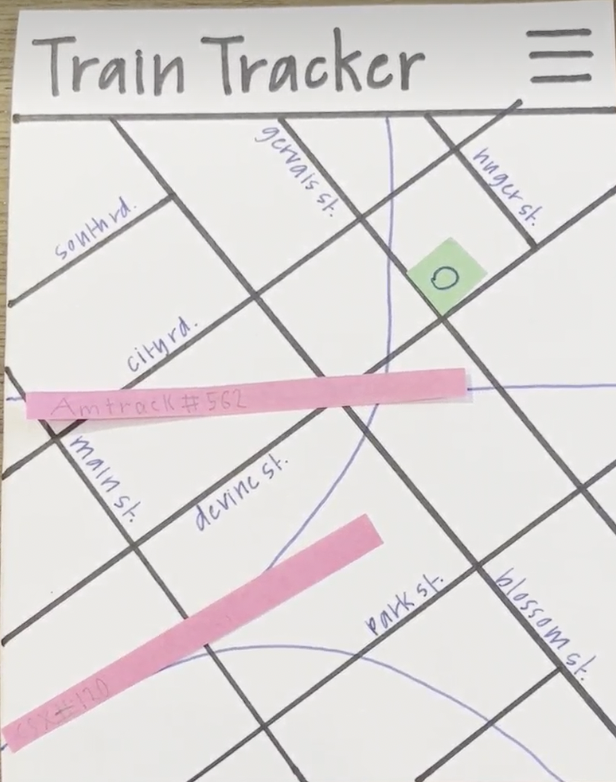 Train Tracker
gervais st.
huger st.
south rd.
city rd.
Amtrack #562
main st.
devine st.
park st.
blossom st.
CSX #120